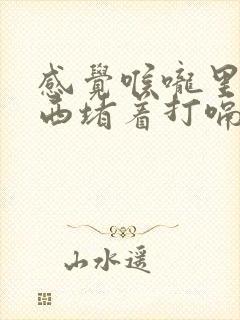 感覺喉嚨里
西堵着打嗝
山水遥